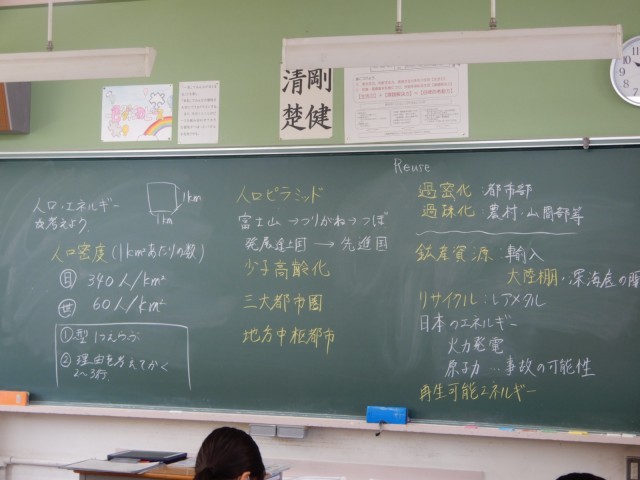 清剛
楚健
人口・エネルギー
を考えよう
1km
1km
人口密度(1km²あたりの数)
日 340人/km²
世 60人/km²
①型 1つえらぶ
②理由を考えてかく
2〜3行
人口ピラミッド
富士山→つりがね→つぼ
発展途上国→先進国
少子高齢化
三大都市圏
地方中枢都市
Reure
過密化:都市部
過疎化:農村・山間部等
鉱産資源:輸入
大陸棚・深海底の開
リサイクル:レアメタル
日本のエネルギー
火力発電
原子力…事故の可能性
再生可能エネルギー